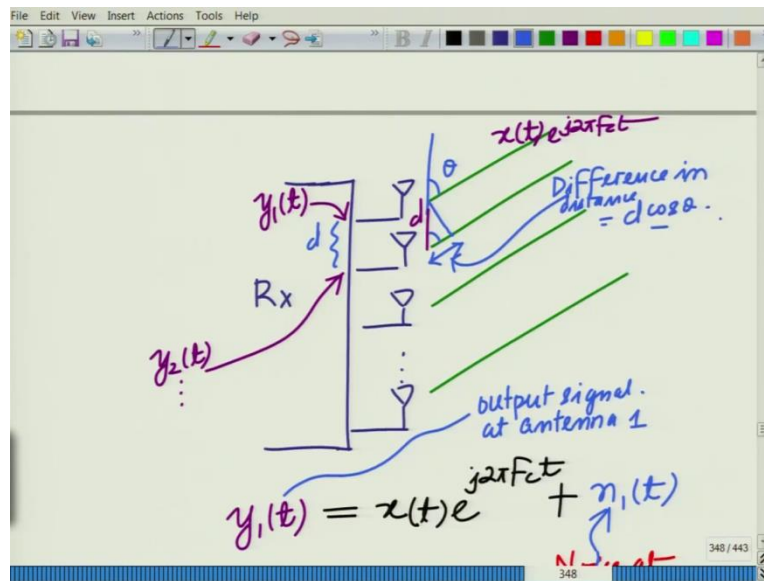 File Edit View Insert Actions Tools Help
B I
x(t)e^{j2πF_ct}
θ
Difference in
distance
= d cosθ.
y_1(t)
d
d
Rx
y_2(t)
⋮
⋮
output signal.
at antenna 1
y_1(t) = x(t)e^{j2πF_ct} + n_1(t)
348 / 443
348